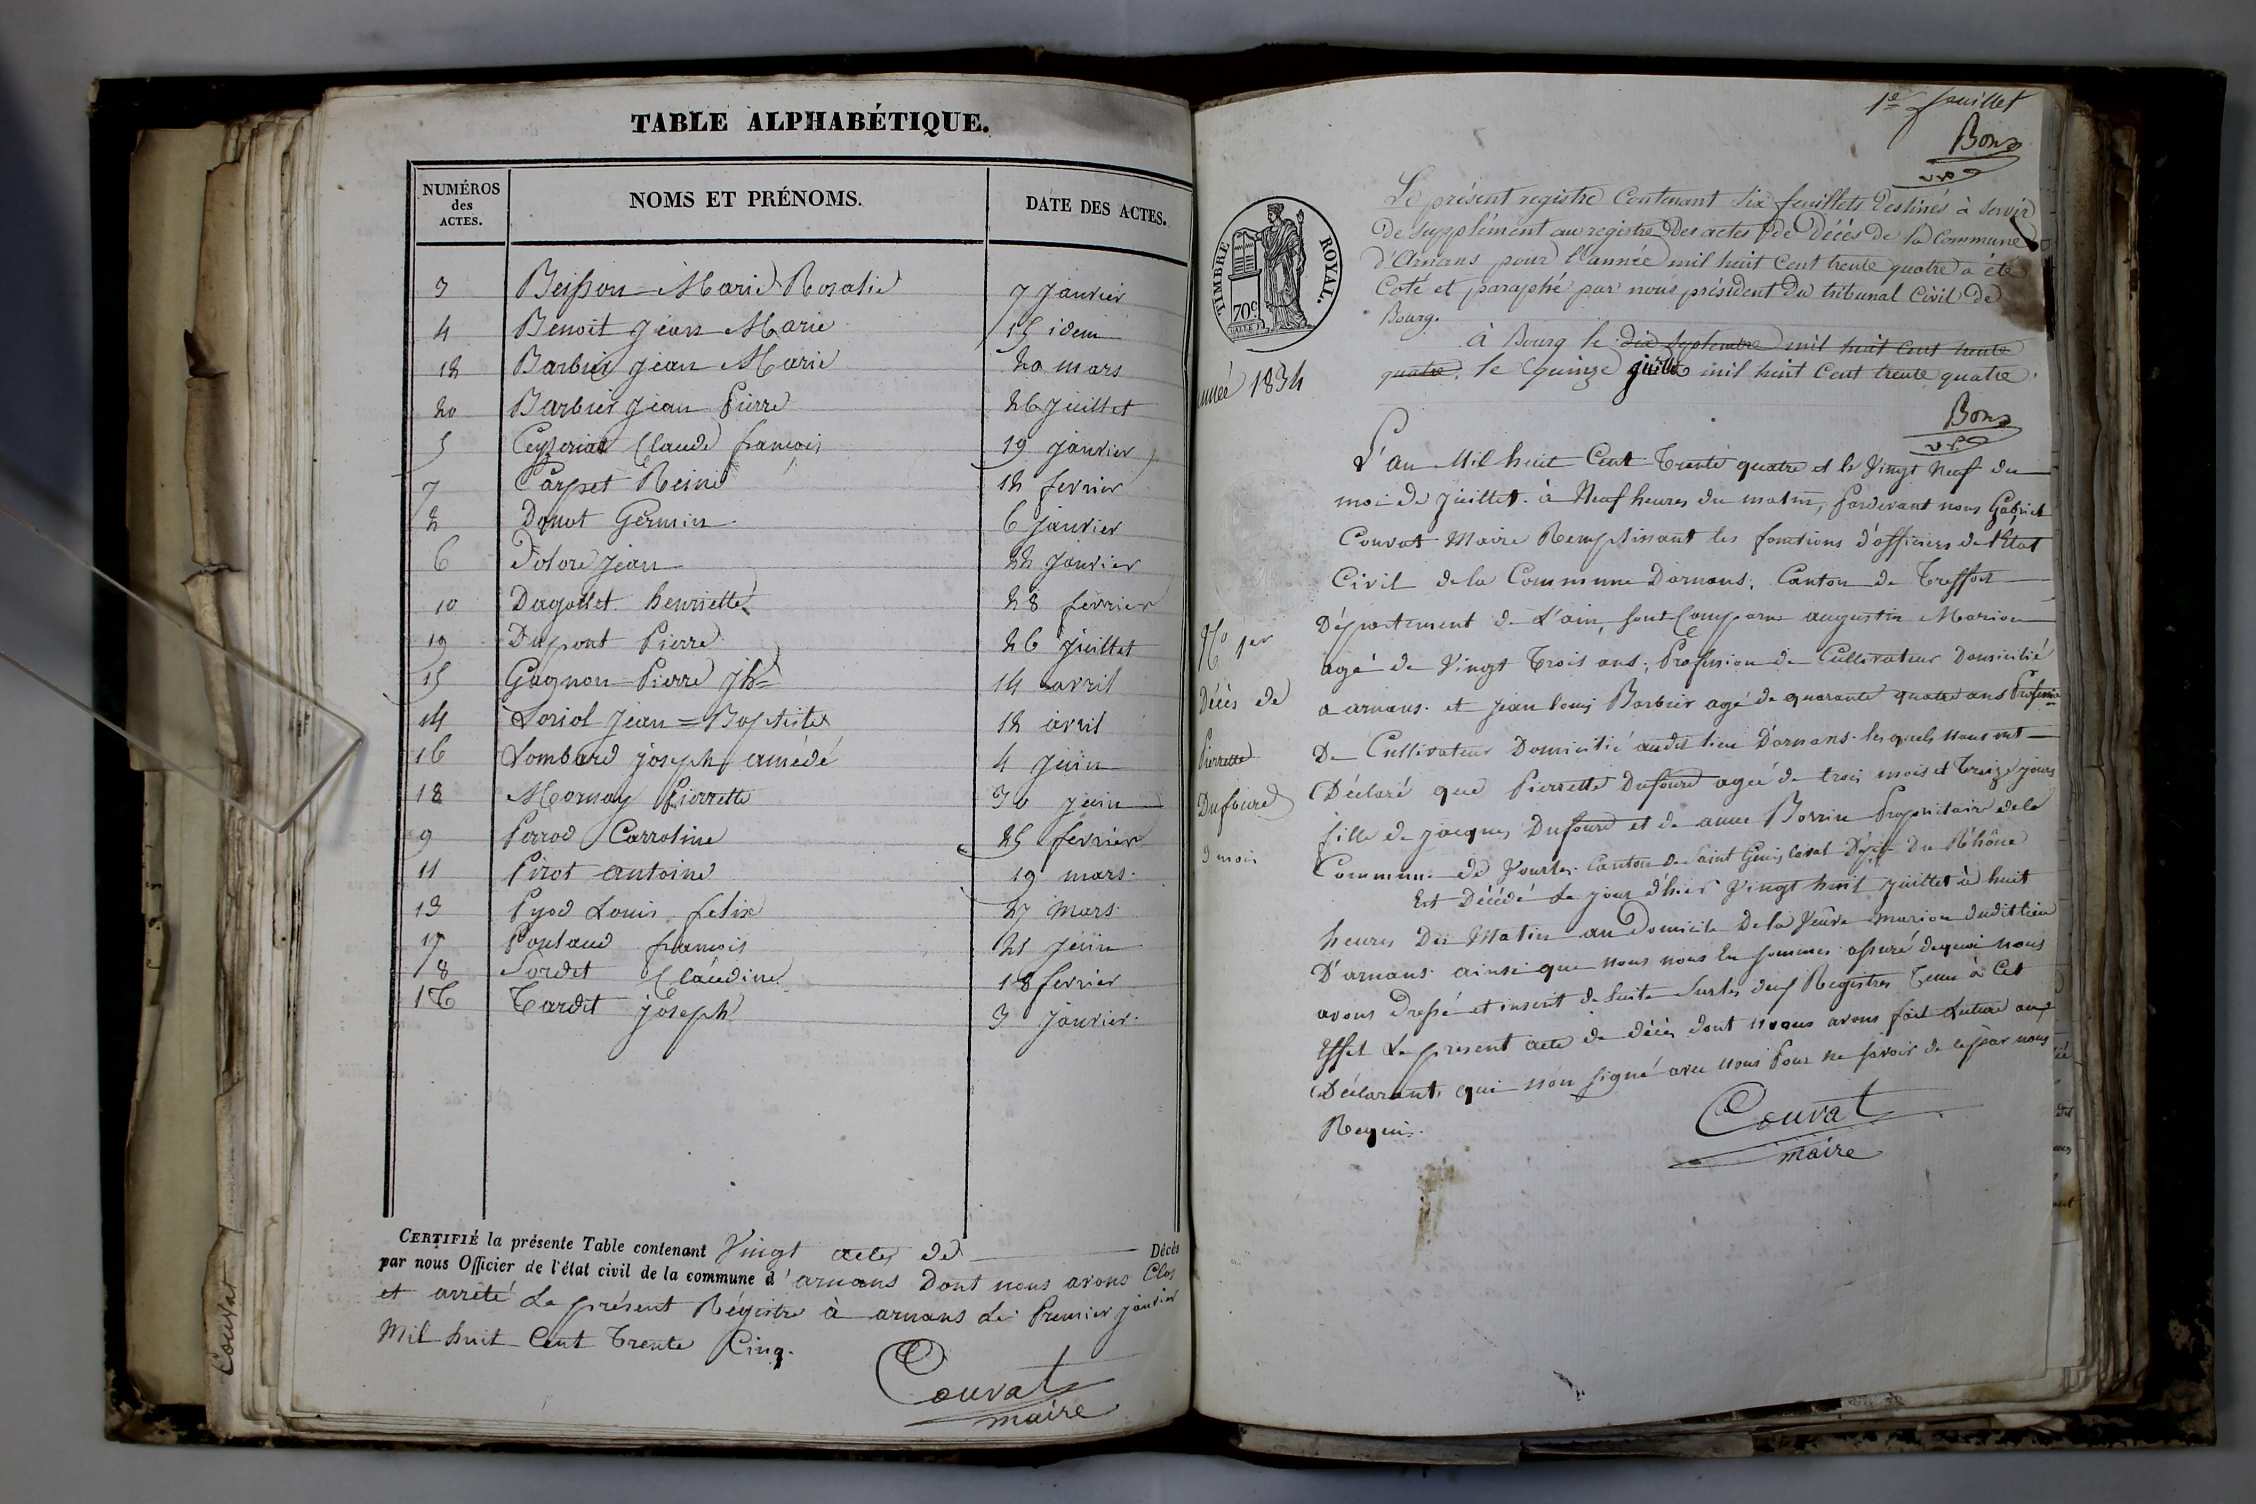 TABLE ALPHABÉTIQUE.
NUMÉROS des ACTES. NOMS ET PRÉNOMS. DATE DES ACTES.
3 Beisson Marie Rosalie 7 Janvier
4 Benoit Jean Marie 15 idem
12 Barbier Jean Marie 20 mars
20 Barbier Jean Pierre 26 Juillet
5 Ceyzeriat Claude françois 19 janvier
7 Carpet Reine 12 fevrier
2 Donot Germin 6 Janvier
6 Dolore Jean 22 Janvier
10 Dagallet henriette 28 février
19 Dupont Pierre 26 Juillet
15 Gagnon Pierre Jh 14 avril
14 Loriol Jean = Baptiste 12 avril
16 Lombard joseph amédé 4 Juin
18 Mornay Pierrette 30 Juin
9 Perrod Carroline 25 fevrier
11 Pirot antoine 19 mars.
13 Pyod Louis felix 27 Mars
17 Poulaud françois 21 Juin
8 Sordet Claudine 18 fevrier
1 Tardit joseph 3 Janvier.
CERTIFIÉ la présente Table contenant Vingt actes de Décès
par nous Officier de l'état civil de la commune d'arnans Dont nous avons Clos
et arrêté Le présent Régistre à arnans Le Premier janvier
Mil huit Cent Trente Cinq.
Couvat
maire
Couvat
1e feuillet
Bon
TIMBRE ROYAL.
70c
Le présent registre Contenant Six feuillets Destinés à Servir
De Supplément au registre Des actes De Décès de la Commune
d'Arnans pour l'année mil huit Cent trente quatre a été
Coté et paraphé par nous président du tribunal Civil de
Bourg.
à Bourg le dix Septembre mil huit Cent trente
quatre. le quinze juillet mil huit Cent trente quatre.
Bon
année 1834
L'an Mil huit Cent Trente quatre et le Vingt Neuf du
moi de Juillet à Neuf heures du matin, Pardevant nous Gabriel
Couvat Maire Remplissant les fonctions d'officiers de l'Etat
Civil de la Commune Darnans, Canton de Treffort
Département de L'ain, sont Comparu augustin Marion
agé de Vingt Trois ans, Profession de Cultivateur Domicilié
a arnans et Jean louis Barbier agé de quarante quatre ans Profession
De Cultivateur Domicilié audit lieu D'arnans lesquels nous ont
Déclaré que Pierrette Dufoure agée de trois mois et Treize jours
fille de Jacques Dufoure et de anne Borrin Propriétaire de la
Commune de Vourles Canton de Saint Genis laval Dép du Rhône
Est Décédé Le jour d'hier Vingt huit Juillet à huit
heures Du Matin au Domicile De la Veuve marion dudit lieu
D'arnans ainsi que nous nous en sommes assuré dequoi nous
avons Dressé et inscrit de suite Sur les deux Registres Tenu à Cet
Effet Le présent acte de décès dont nous avons fait Lecture aux
Déclarants qui n'on signé avec nous Pour ne savoir de ce par nous
Requis.
Couvat
maire
No 1er
Décès de
Pierrette
Dufoure
3 mois